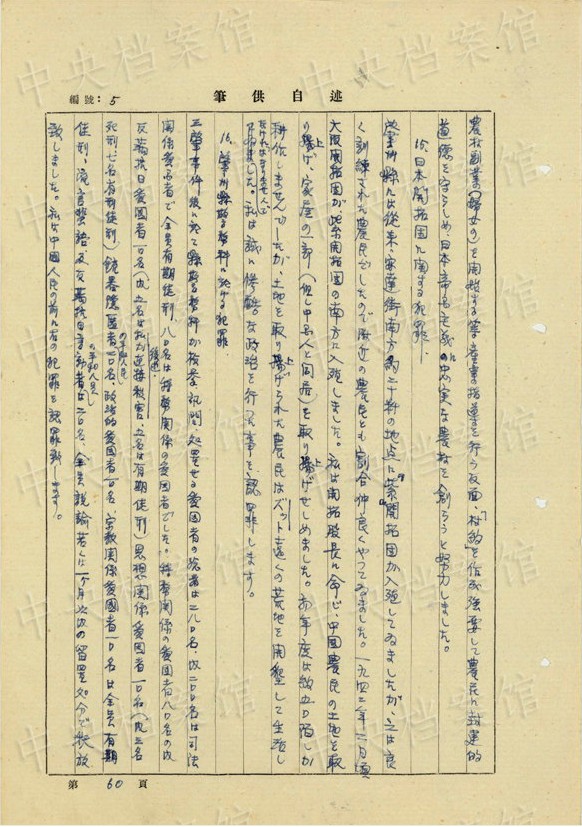 中央档案馆
筆供自述
編號：5
農村副業（婦女の）を開始する等産業指導を行う反面、「村約」を作成強要して農民に封建的
道徳を守らしめ、日本帝国主義に忠実な農村を創ろうと努力しました。
15、日本開拓団に関する犯罪
肇州縣には従来、家達街南方約二十粁の地点に"紫"開拓団が入殖してゐましたが、之は良
く訓練された農民でしたので附近の農民とも割合仲良くやってゐました。一九四二年二月頃
大阪開拓団が紫開拓団の南方に入殖しました。私は開拓股長に命じ中国農民の土地を取
り上げ、家屋の一部（但し中国人と同居）を取り上げせしめました。初年度は約五〇垧しか
耕作しませんでしたが、土地を取り上げられた農民はズット遠くの荒地を開墾して生活し
なければなりませんで
した。私は誠に惨酷な政治を行った事を認罪します。
16、肇州縣警務科に於ける犯罪
三肇事件後に於て縣警務科が検挙、訊問、処置せる愛国者の総数は二八〇名、内二〇〇名は司法
関係愛国者で全員有期徒刑、八〇名は特務関係の愛国者でした。特務関係の愛国者八〇名の内
反満抗日愛国者一〇名（内五名は私が逮捕殺害、五名は有期徒刑）思想関係愛国者一〇名（内三名
死刑七名有期徒刑）
政治的愛国者一〇名、宗教関係愛国者一〇名は全員有期
徒刑、流言蜚語及反満抗日言動者は二〇名、全員説諭若くは一ヶ月以内の留置処分で釈放
の平和人民
致しました。私は中国人民の前に右の犯罪を認罪致します。
第 60 頁